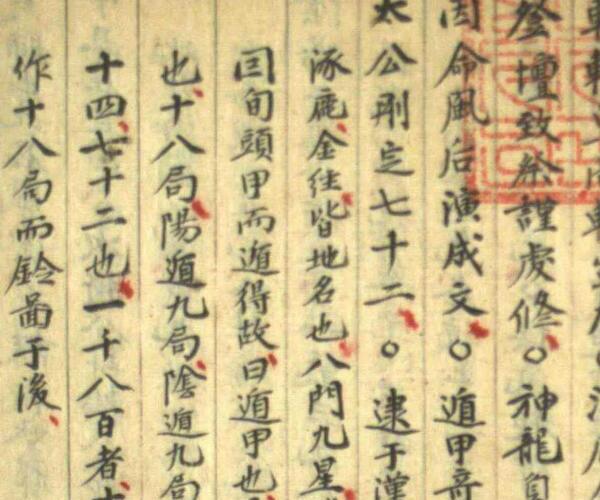 登壇致祭謹虔修○神龍負
因命風后演成文○遁甲奇
太公刪定七十二○逮于漢
涿鹿金往皆地名也八門九星
囙旬頭甲而遁得故曰遁甲也
也十八局陽遁九局陰遁九局
十四七十二也一千八百者
作十八局而鈐啚于後